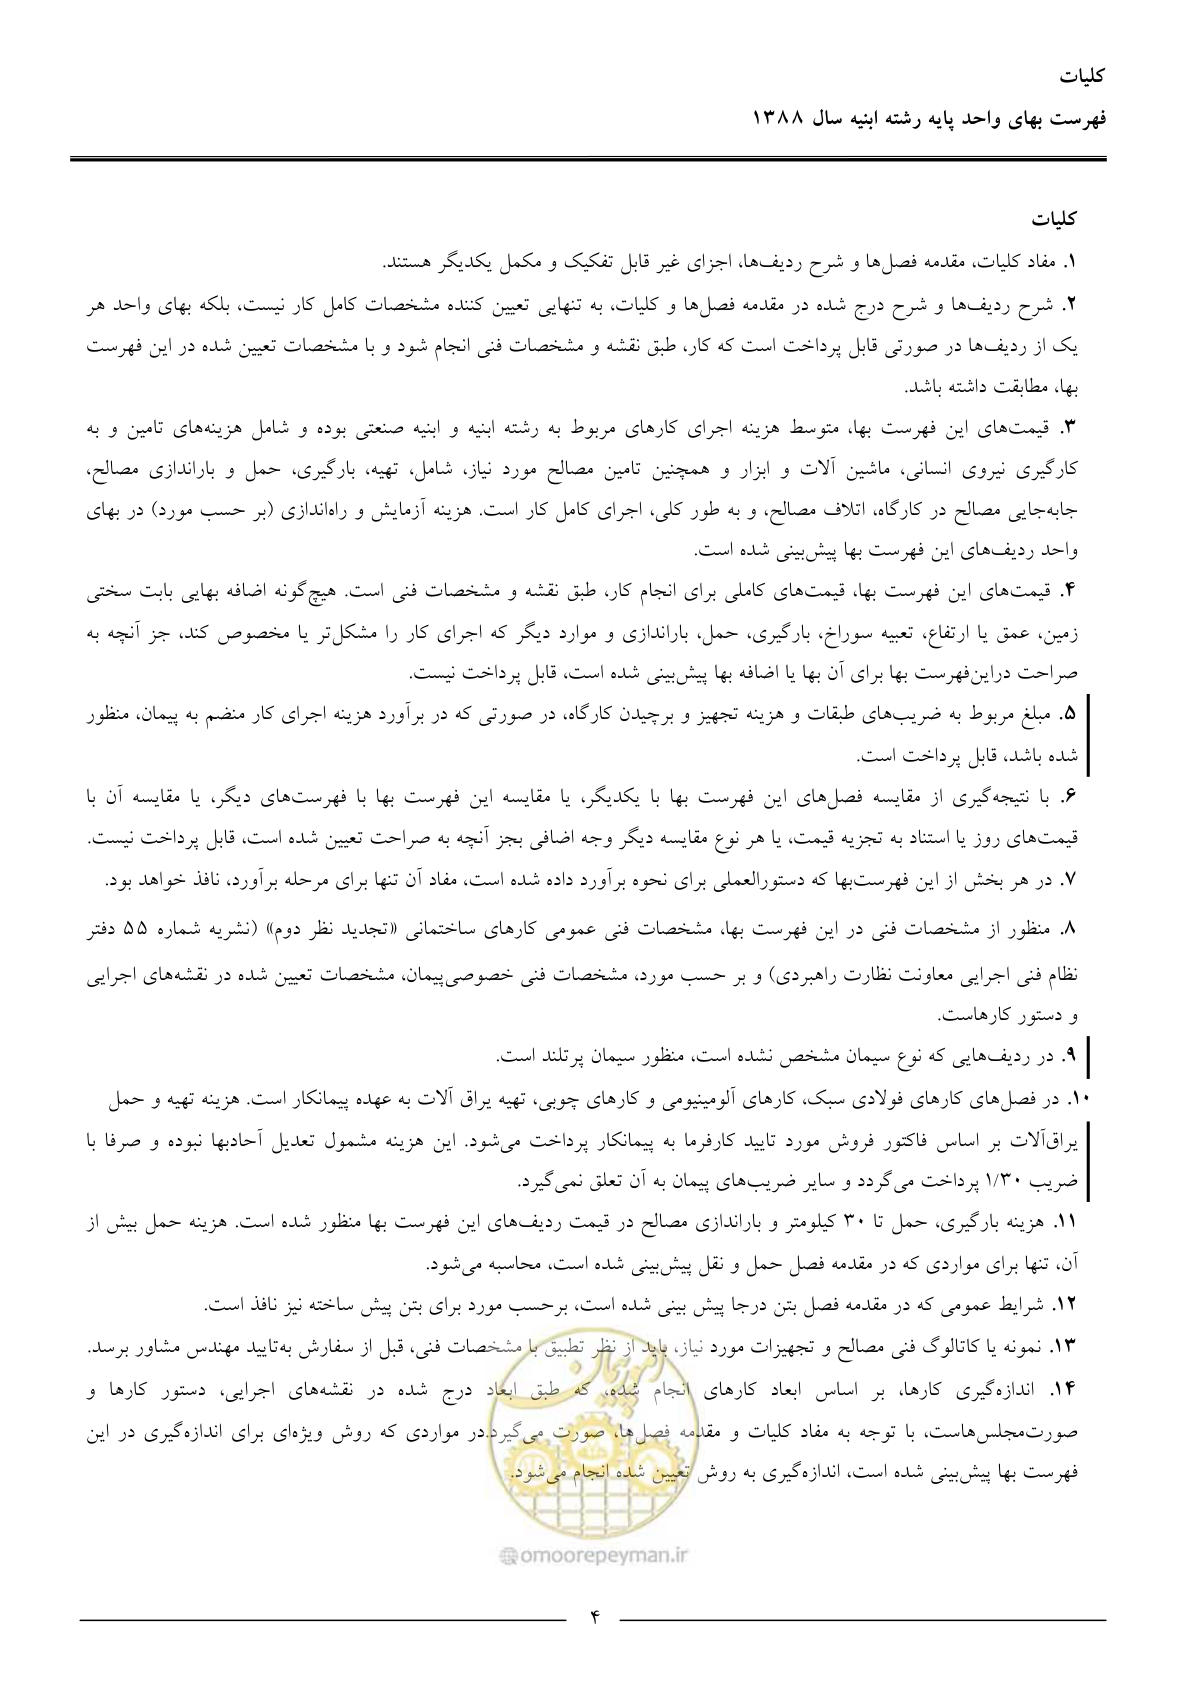 کلیات
فهرست بهای واحد پایه رشته ابنیه سال ۱۳۸۸
کلیات
۱. مفاد کلیات، مقدمه فصل‌ها و شرح ردیف‌ها، اجزای غیر قابل تفکیک و مکمل یکدیگر هستند.
۲. شرح ردیف‌ها و شرح درج شده در مقدمه فصل‌ها و کلیات، به تنهایی تعیین کننده مشخصات کامل کار نیست، بلکه بهای واحد هر
یک از ردیف‌ها در صورتی قابل پرداخت است که کار، طبق نقشه و مشخصات فنی انجام شود و با مشخصات تعیین شده در این فهرست
بها، مطابقت داشته باشد.
۳. قیمت‌های این فهرست بها، متوسط هزینه اجرای کارهای مربوط به رشته ابنیه و ابنیه صنعتی بوده و شامل هزینه‌های تامین و به
کارگیری نیروی انسانی، ماشین آلات و ابزار و همچنین تامین مصالح مورد نیاز، شامل، تهیه، بارگیری، حمل و باراندازی مصالح،
جابه‌جایی مصالح در کارگاه، اتلاف مصالح، و به طور کلی، اجرای کامل کار است. هزینه آزمایش و راه‌اندازی (بر حسب مورد) در بهای
واحد ردیف‌های این فهرست بها پیش‌بینی شده است.
۴. قیمت‌های این فهرست بها، قیمت‌های کاملی برای انجام کار، طبق نقشه و مشخصات فنی است. هیچ‌گونه اضافه بهایی بابت سختی
زمین، عمق یا ارتفاع، تعبیه سوراخ، بارگیری، حمل، باراندازی و موارد دیگر که اجرای کار را مشکل‌تر یا مخصوص کند، جز آنچه به
صراحت دراین‌فهرست بها برای آن بها یا اضافه بها پیش‌بینی شده است، قابل پرداخت نیست.
۵. مبلغ مربوط به ضریب‌های طبقات و هزینه تجهیز و برچیدن کارگاه، در صورتی که در برآورد هزینه اجرای کار منضم به پیمان، منظور
شده باشد، قابل پرداخت است.
۶. با نتیجه‌گیری از مقایسه فصل‌های این فهرست بها با یکدیگر، یا مقایسه این فهرست بها با فهرست‌های دیگر، یا مقایسه آن با
قیمت‌های روز یا استناد به تجزیه قیمت، یا هر نوع مقایسه دیگر وجه اضافی بجز آنچه به صراحت تعیین شده است، قابل پرداخت نیست.
۷. در هر بخش از این فهرست‌بها که دستورالعملی برای نحوه برآورد داده شده است، مفاد آن تنها برای مرحله برآورد، نافذ خواهد بود.
۸. منظور از مشخصات فنی در این فهرست بها، مشخصات فنی عمومی کارهای ساختمانی «تجدید نظر دوم» (نشریه شماره ۵۵ دفتر
نظام فنی اجرایی معاونت نظارت راهبردی) و بر حسب مورد، مشخصات فنی خصوصی‌پیمان، مشخصات تعیین شده در نقشه‌های اجرایی
و دستور کارهاست.
۹. در ردیف‌هایی که نوع سیمان مشخص نشده است، منظور سیمان پرتلند است.
۱۰. در فصل‌های کارهای فولادی سبک، کارهای آلومینیومی و کارهای چوبی، تهیه یراق آلات به عهده پیمانکار است. هزینه تهیه و حمل
یراق‌آلات بر اساس فاکتور فروش مورد تایید کارفرما به پیمانکار پرداخت می‌شود. این هزینه مشمول تعدیل آحادبها نبوده و صرفا با
ضریب ۱/۳۰ پرداخت می‌گردد و سایر ضریب‌های پیمان به آن تعلق نمی‌گیرد.
۱۱. هزینه بارگیری، حمل تا ۳۰ کیلومتر و باراندازی مصالح در قیمت ردیف‌های این فهرست بها منظور شده است. هزینه حمل بیش از
آن، تنها برای مواردی که در مقدمه فصل حمل و نقل پیش‌بینی شده است، محاسبه می‌شود.
۱۲. شرایط عمومی که در مقدمه فصل بتن درجا پیش بینی شده است، برحسب مورد برای بتن پیش ساخته نیز نافذ است.
۱۳. نمونه یا کاتالوگ فنی مصالح و تجهیزات مورد نیاز، باید از نظر تطبیق با مشخصات فنی، قبل از سفارش به‌تایید مهندس مشاور برسد.
۱۴. اندازه‌گیری کارها، بر اساس ابعاد کارهای انجام شده، که طبق ابعاد درج شده در نقشه‌های اجرایی، دستور کارها و
صورت‌مجلس‌هاست، با توجه به مفاد کلیات و مقدمه فصل‌ها، صورت می‌گیرد.در مواردی که روش ویژه‌ای برای اندازه‌گیری در این
فهرست بها پیش‌بینی شده است، اندازه‌گیری به روش تعیین شده انجام می‌شود.
امور پیمان
@omoorepeyman.ir
۴